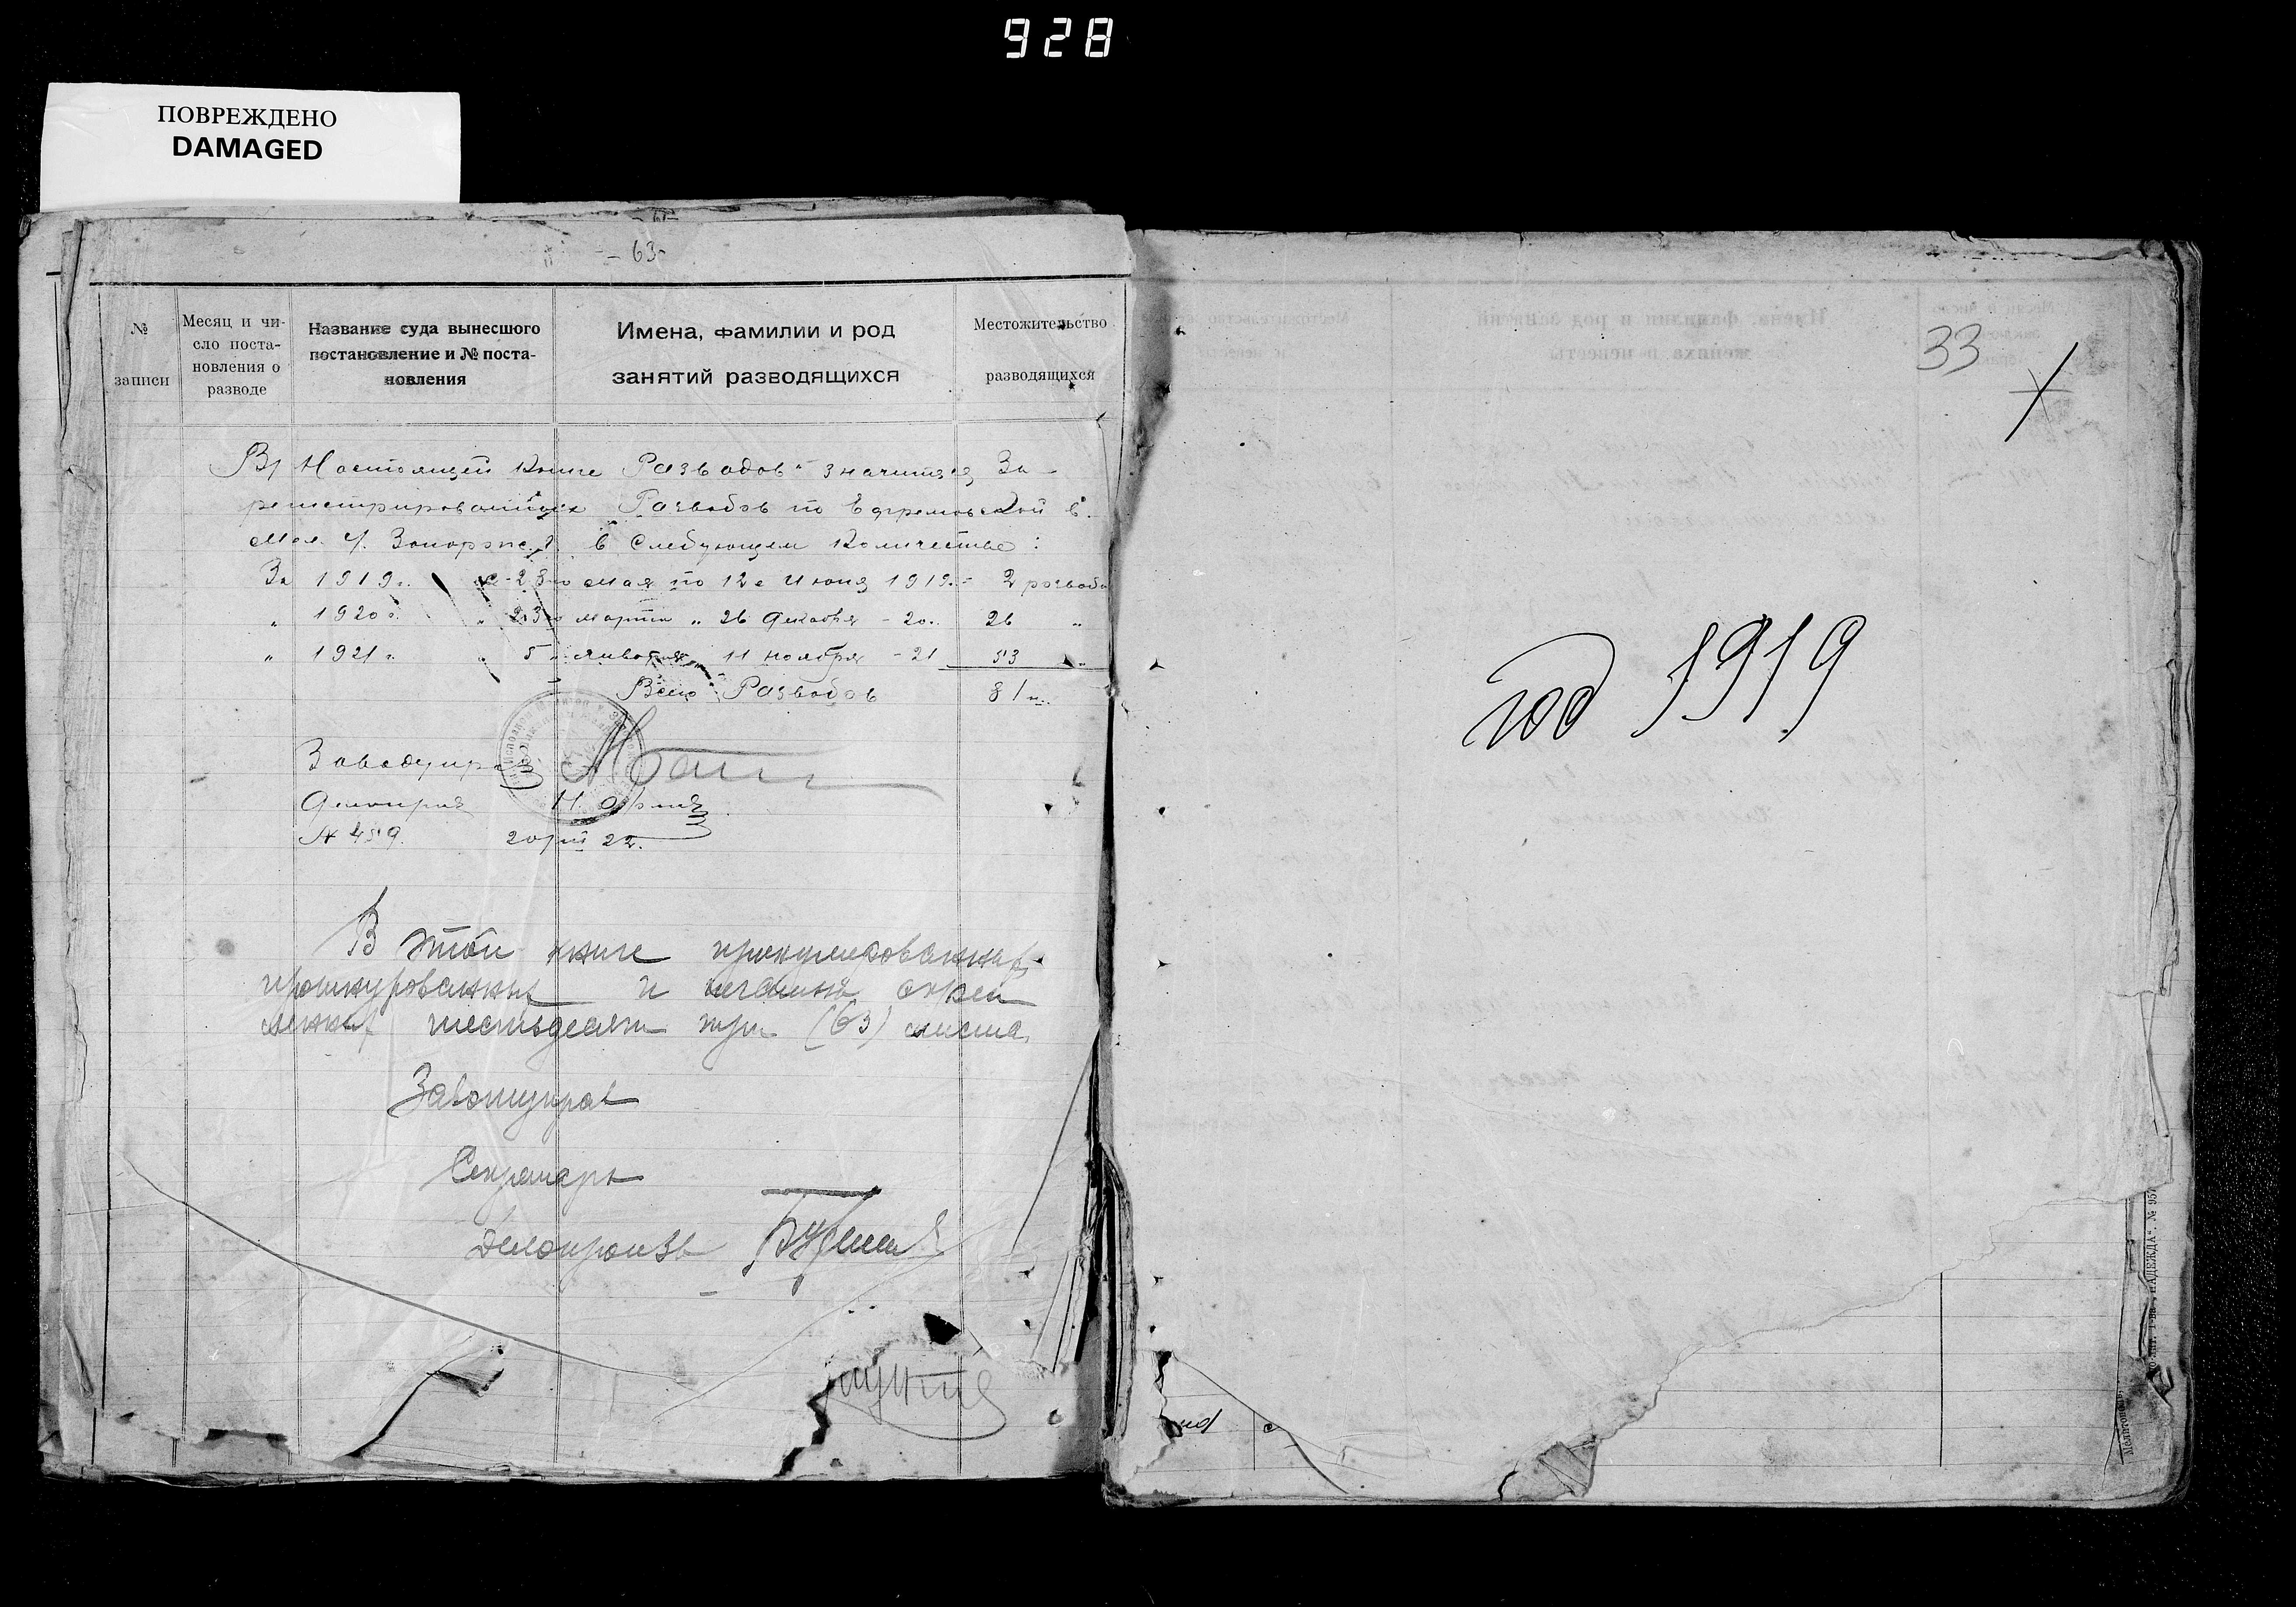 928
ПОВРЕЖДЕНО
DAMAGED
- 63 -
№ записи
Месяц и чи-
сло поста-
новления о
разводе
Название суда вынесшого
постановление и № поста-
новления
Имена, фамилии и род
занятий разводящихся
Местожительство
разводящихся
В Настоящей Книге Разводов" значится За-
регистрированных Разводов по Ефремовской в.
Мел. у. Запорож. г. в Следующем Количестве:
За 1919 г. с - 28 го мая по 12 е Июня 1919. - 2 развода
" 1920 г. " 23 го марта " 26 Декабря - 20. 26 "
" 1921 г. " 5 " января 11 ноября - 21 53 "
Всего Разводов 81
Заведупр
Делопров
№ 459. 22.
В этой книге пронумерованных
прошнурованных и печатью скреп
ленных шестьдесят три (63) листа
Завотуправ
Секретарь
Делопроизв
33
год 1919
НАДЕЖДА". № 957
Мелитополь,